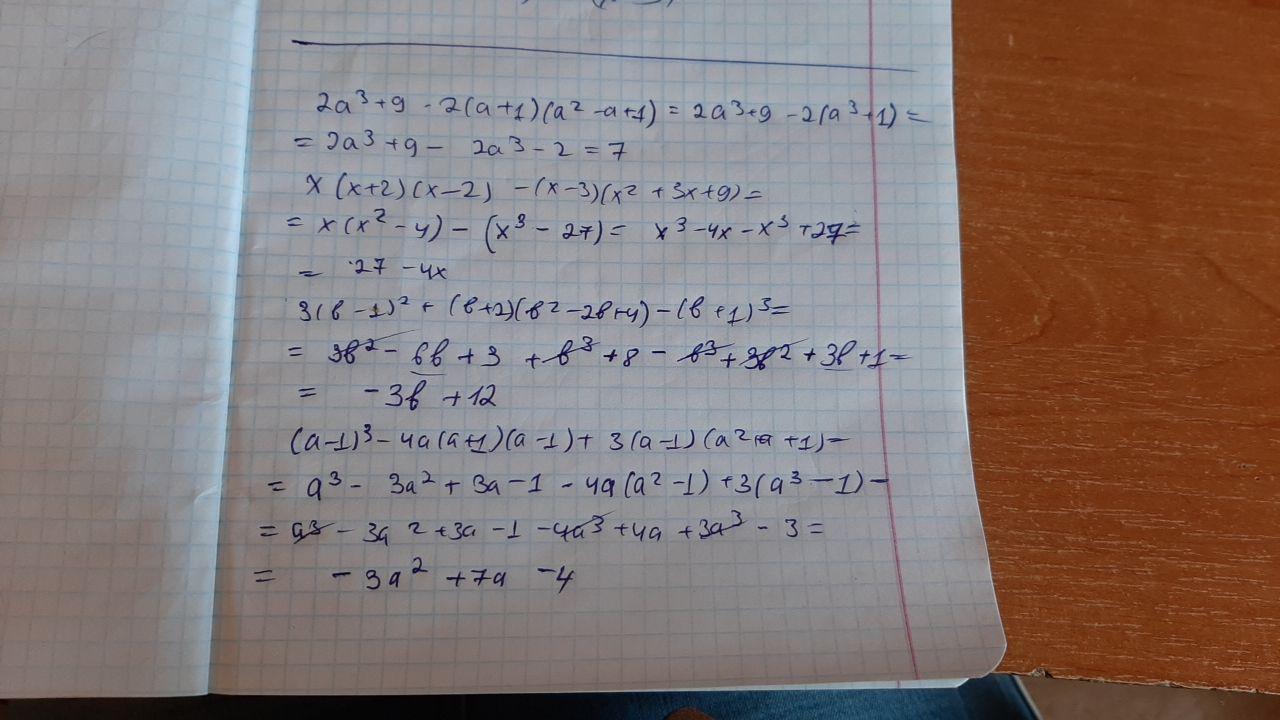 2a³+9 - 2(a+1)(a² -a+1) = 2a³+9 -2(a³+1) =
= 2a³ +9 - 2a³ - 2 = 7
x (x+2)(x-2) -(x-3)(x² + 3x+9)=
= x(x² - 4) - (x³ - 27)= x³-4x - x³ +27=
= 27 -4x
3(в -1)² + (в+2)(в² -2в+4) -(в +1)³=
= 3в² - 6в + 3 + в³ +8 - в³ + 3в² + 3в +1 =
= -3в +12
(a-1)³ - 4a(a+1)(a-1)+ 3(a-1) (a²+a +1)=
= a³ - 3a² + 3a -1 - 4a(a² -1) +3(a³ -1) -
= a³ - 3a² +3a -1 -4a³ +4a +3a³ - 3 =
= - 3a² +7a -4